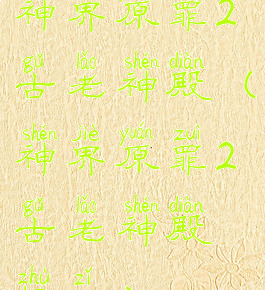 神界原罪2
gǔ lǎo shén diàn
古老神殿（
shén jiè yuán zuì
神界原罪2
gǔ lǎo shén diàn
古老神殿
zhù zǐ